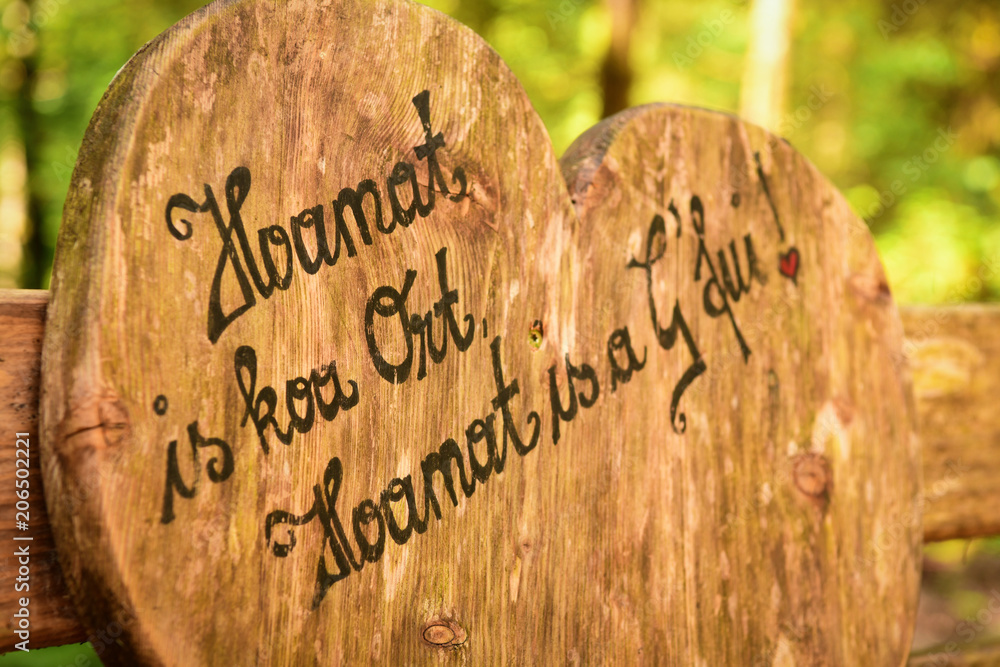 Hoamat
is koa Ort,
Hoamat is a G'füi!
Adobe Stock | #206502221